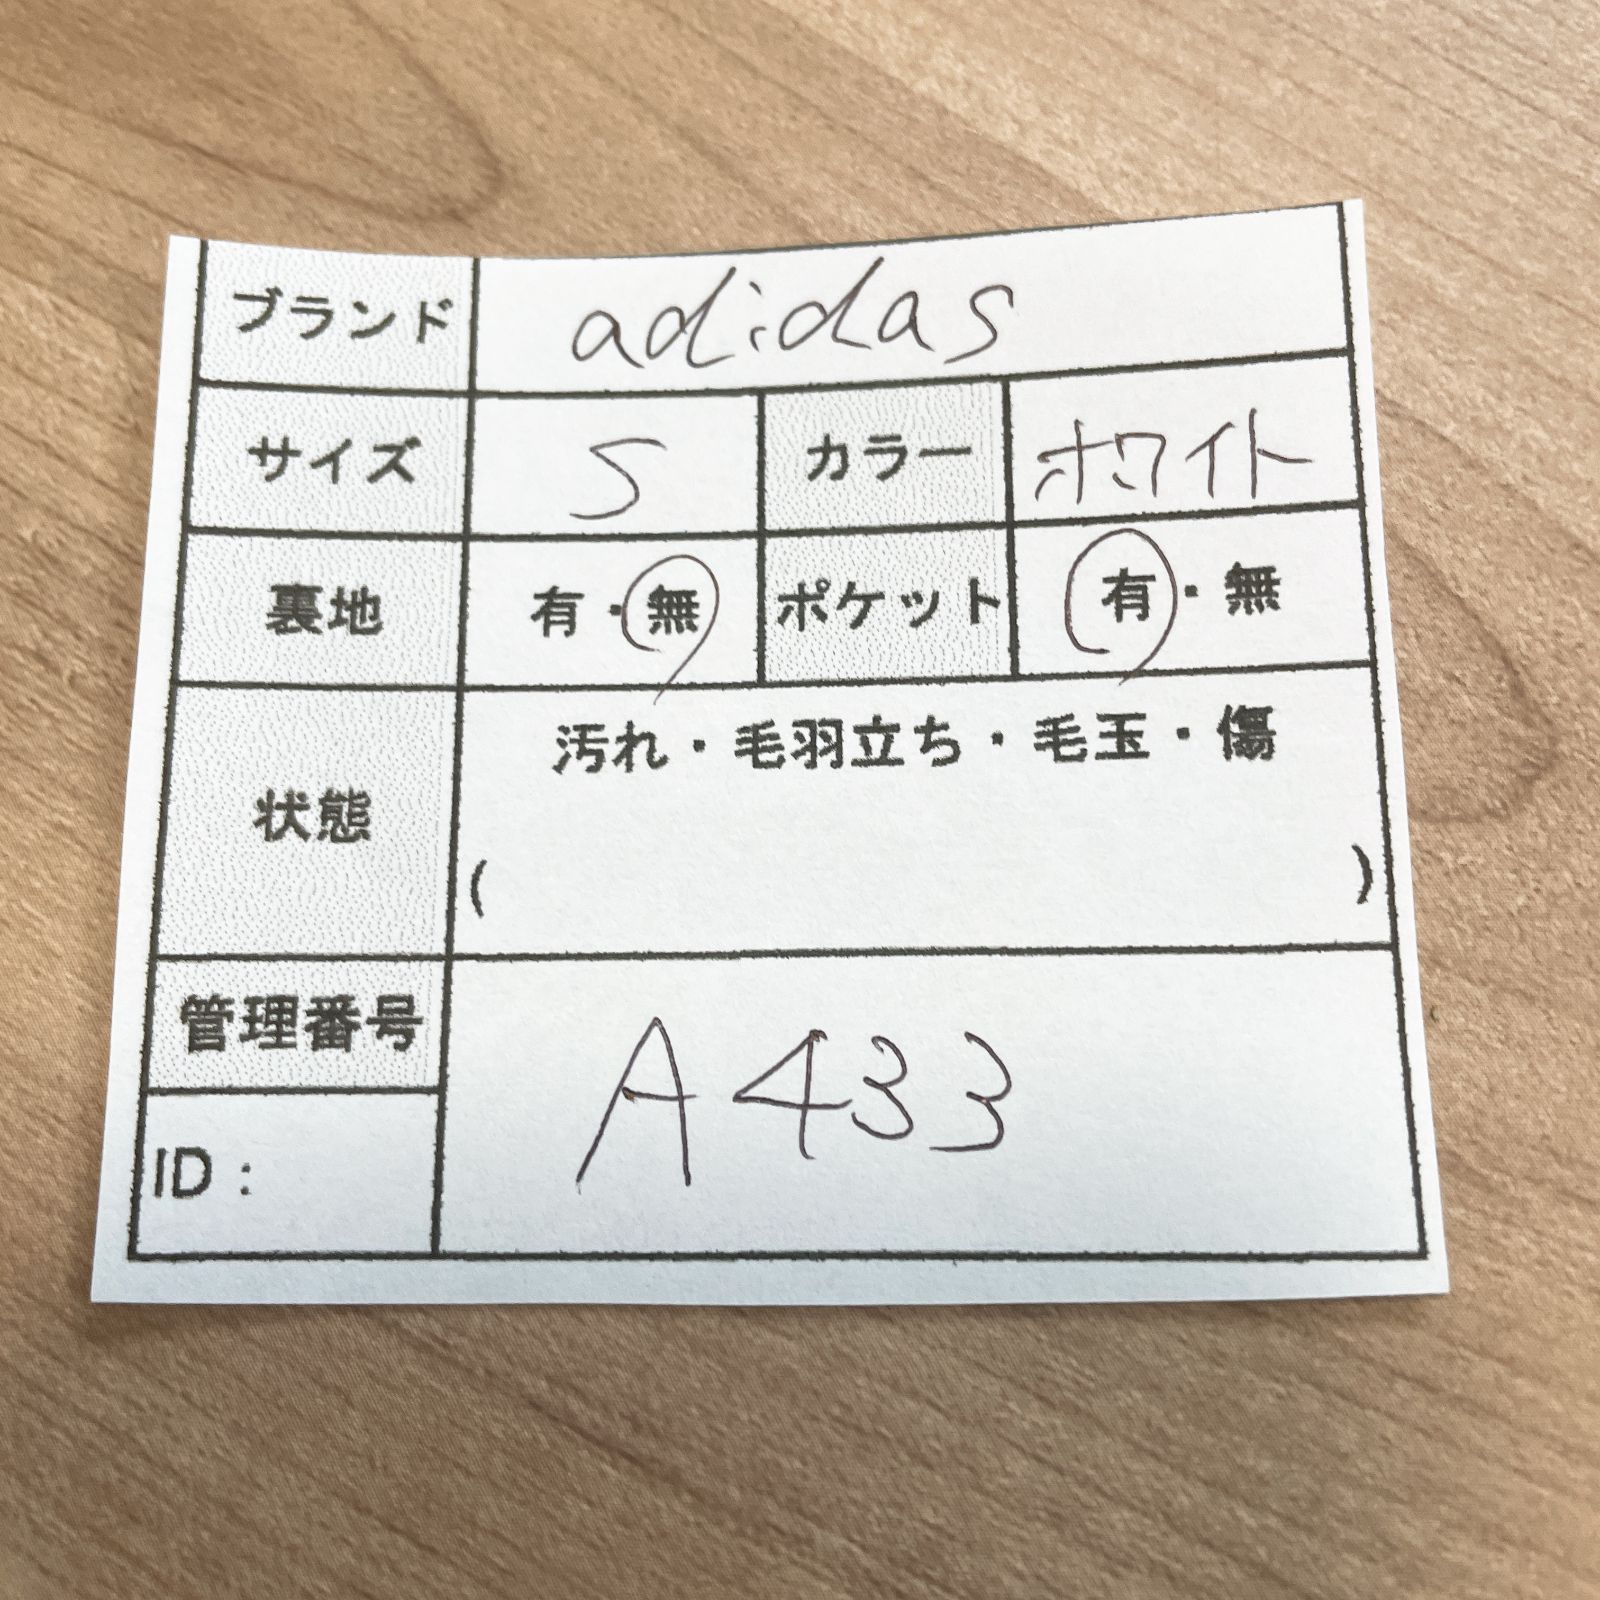 ブランド adidas
サイズ S カラー ホワイト
裏地 有・無 ポケット 有・無
状態 汚れ・毛羽立ち・毛玉・傷
( )
管理番号 A433
ID: